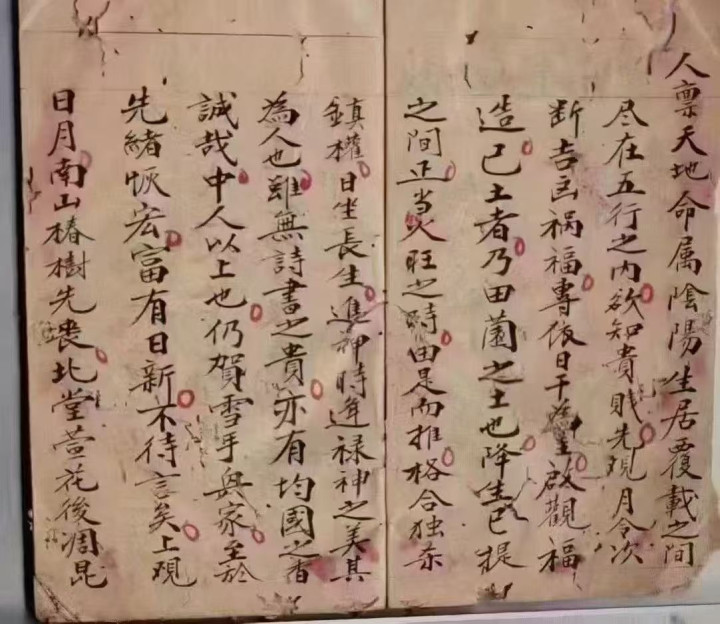 人禀天地命属陰陽生居覆載之间
尽在五行之内欲知貴贱先观月令次
断吉凶祸福專依日干為主啟觀福
造己土者乃田園之土也降生巳提
之間正当火旺之時由是而推格合独杀
鎮權日坐長生進神時逢禄神之美其
為人也雖無詩書之貴亦有均國之香
誠哉中人以上也仍賀雪手兴家至於
先緒恢宏富有日新不待言矣上观
日月南山椿樹先喪北堂萱花後凋昆